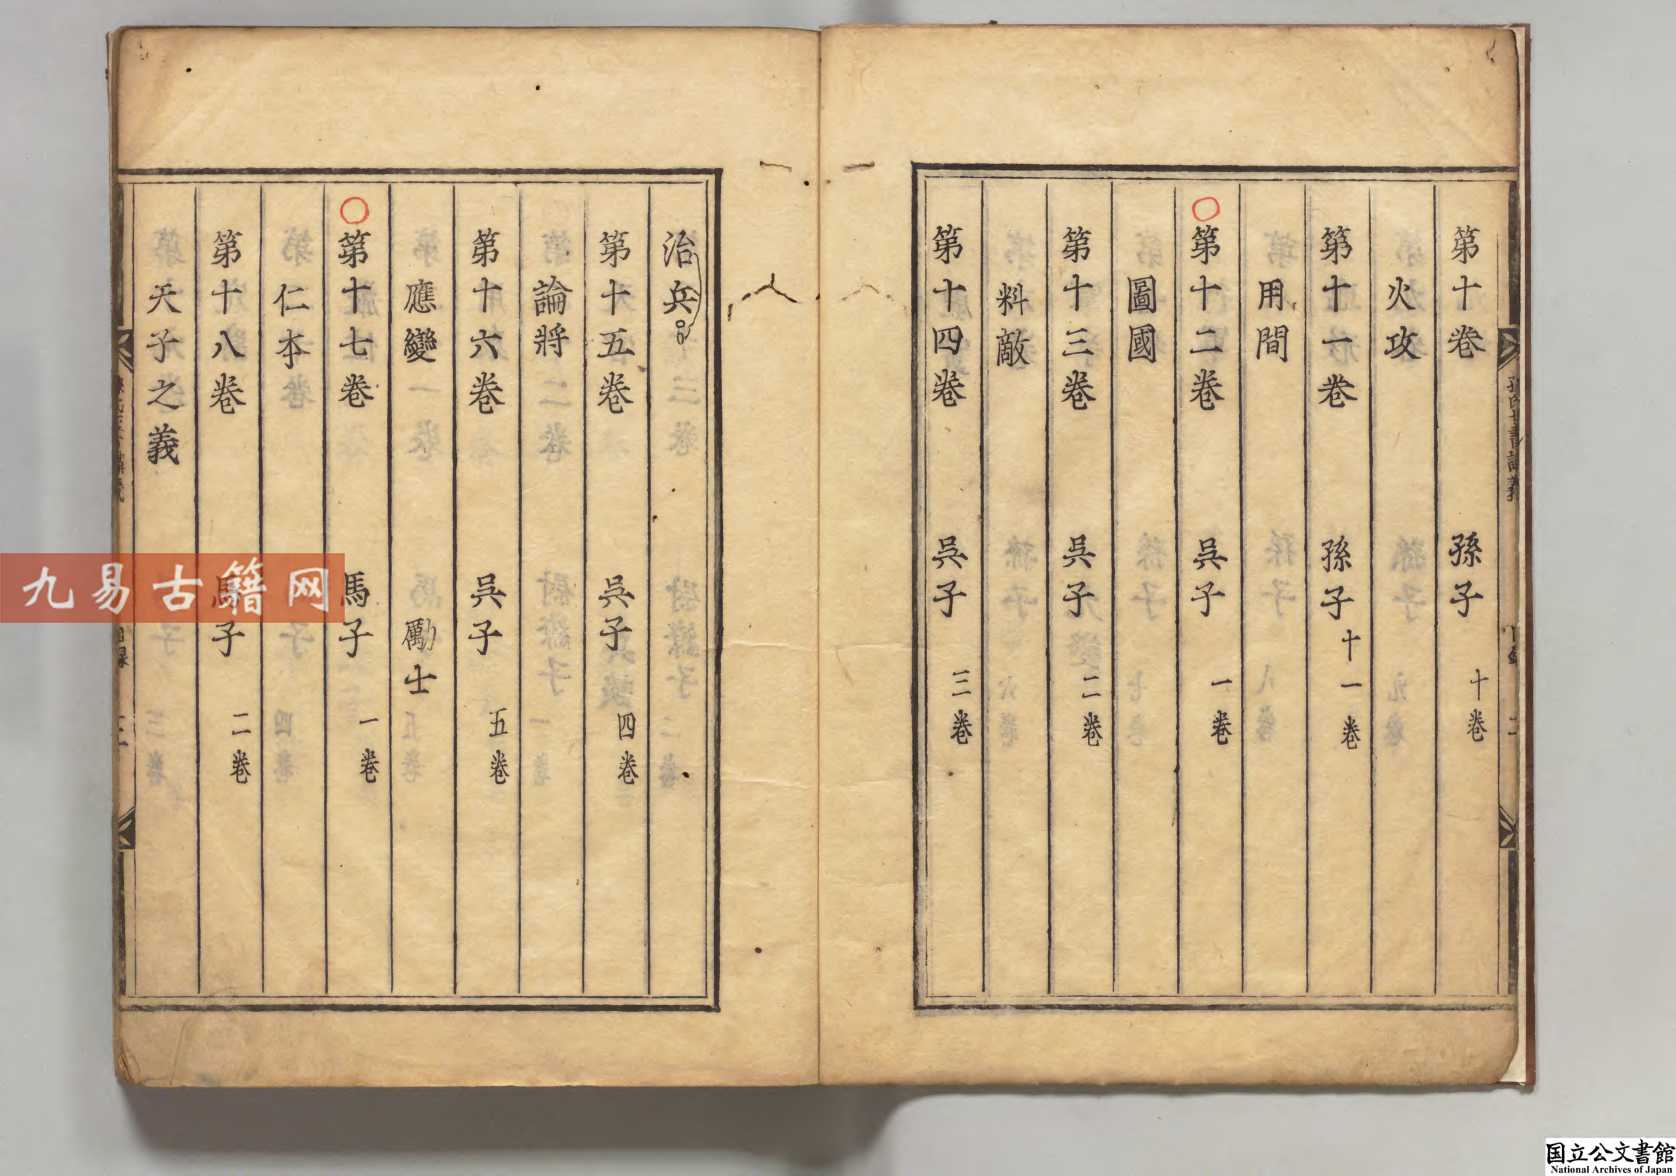 第十卷 孫子 十卷
火攻
第十一卷 孫子 十一卷
用間
第十二卷 吳子 一卷
圖國
第十三卷 吳子 二卷
料敵
第十四卷 吳子 三卷
治兵
第十五卷 吳子 四卷
論將
第十六卷 吳子 五卷
應變 勵士
第十七卷 馬子 一卷
仁本
第十八卷 馬子 二卷
天子之義
九易古籍网
国立公文書館
National Archives of Japan